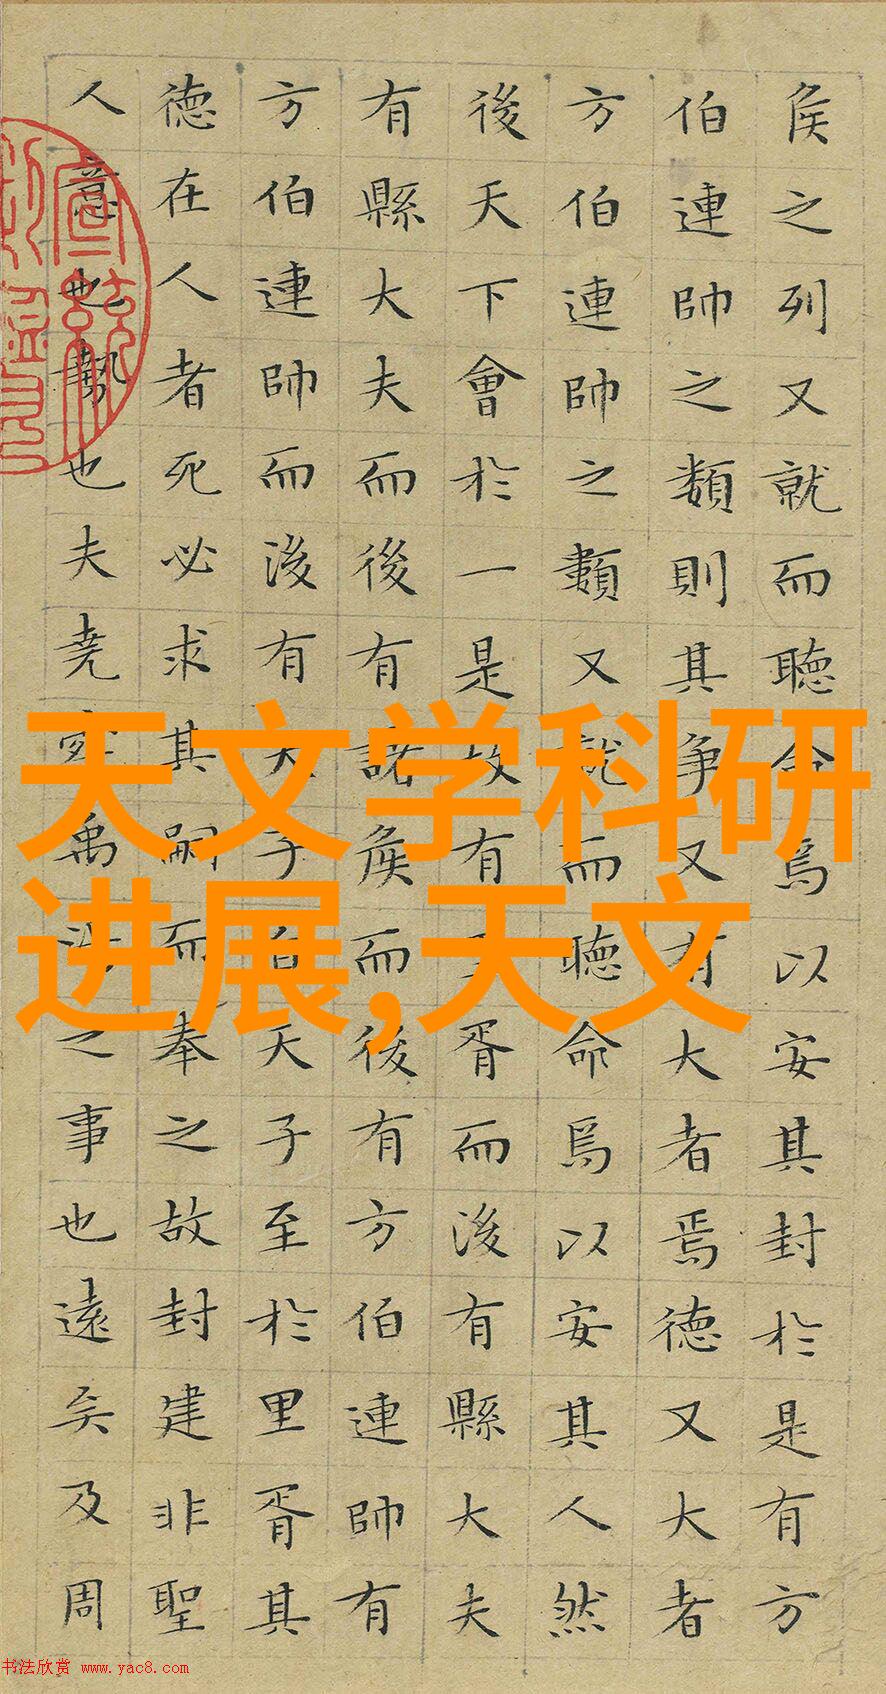 侯之列又就而聽命焉以安其封於是有方
伯連帥之類則其爭又有大者焉德又大者
方伯連帥之類又就而聽命焉以安其人然
後天下會於一是故有里胥而後有縣大夫
有縣大夫而後有諸侯而後有方伯連帥有
方伯連帥而後有天子自天子至於里胥其
德在人者死必求其嗣而奉之故封建非聖
人意也勢也夫堯舜禹湯之事也遠矣及周
天文学科研
进展,天文
书法欣赏 www.yac8.com